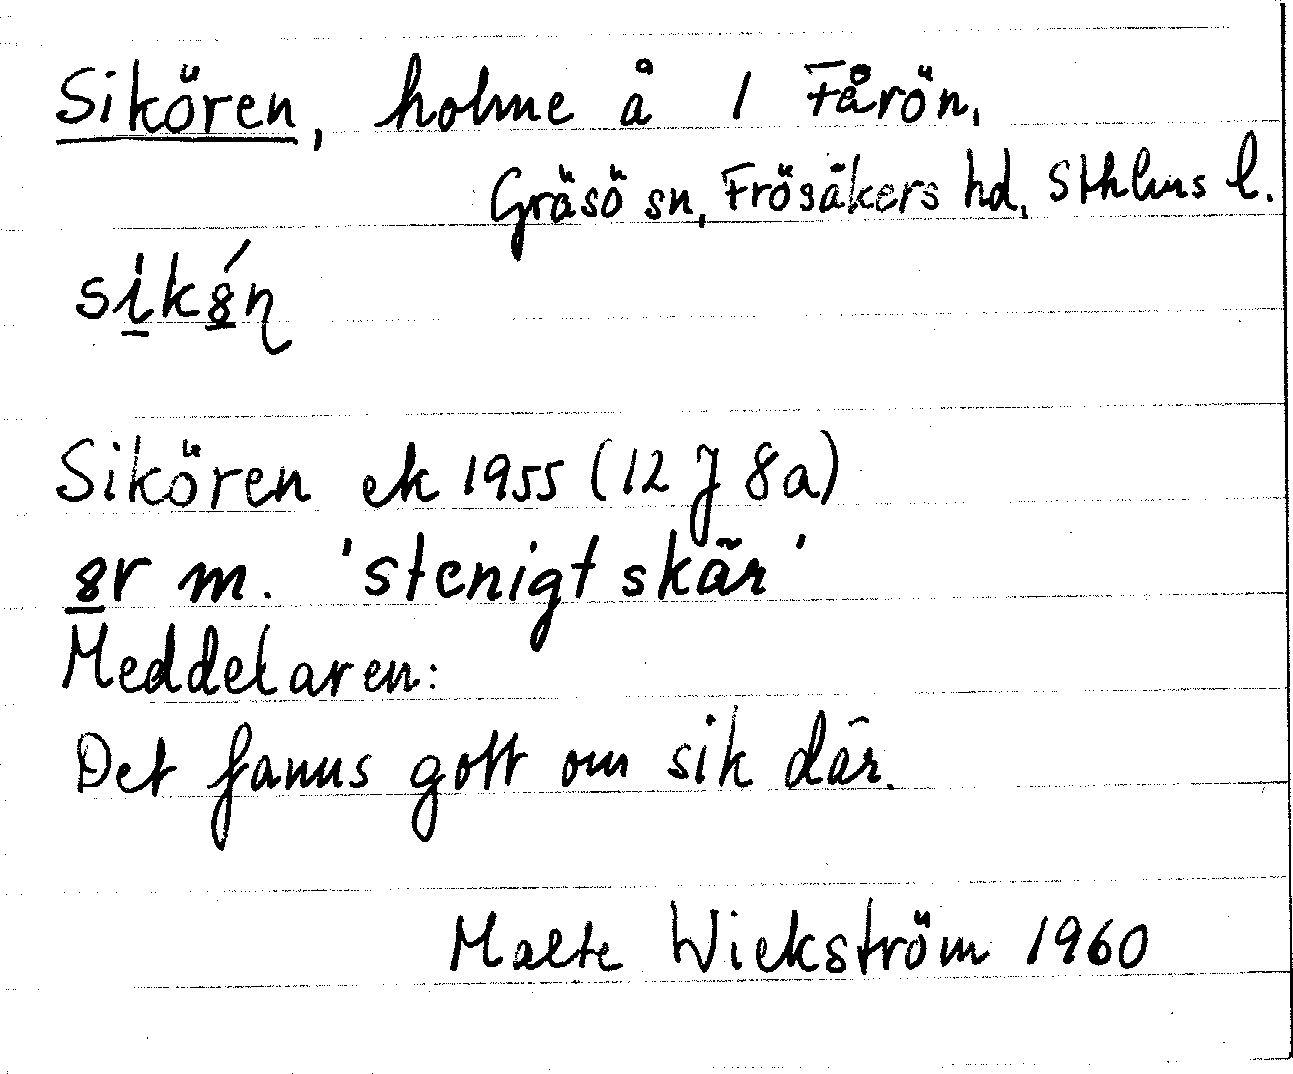 Sikören, holme å 1 Fårön,
Gräsö sn, Frösåkers hd, Sthlms l.
Sikören ek 1955 (12 J 8a)
m. 'stenigt skär'
Meddelaren:
Det fanns gott om sik där.
Malte Wickström 1960